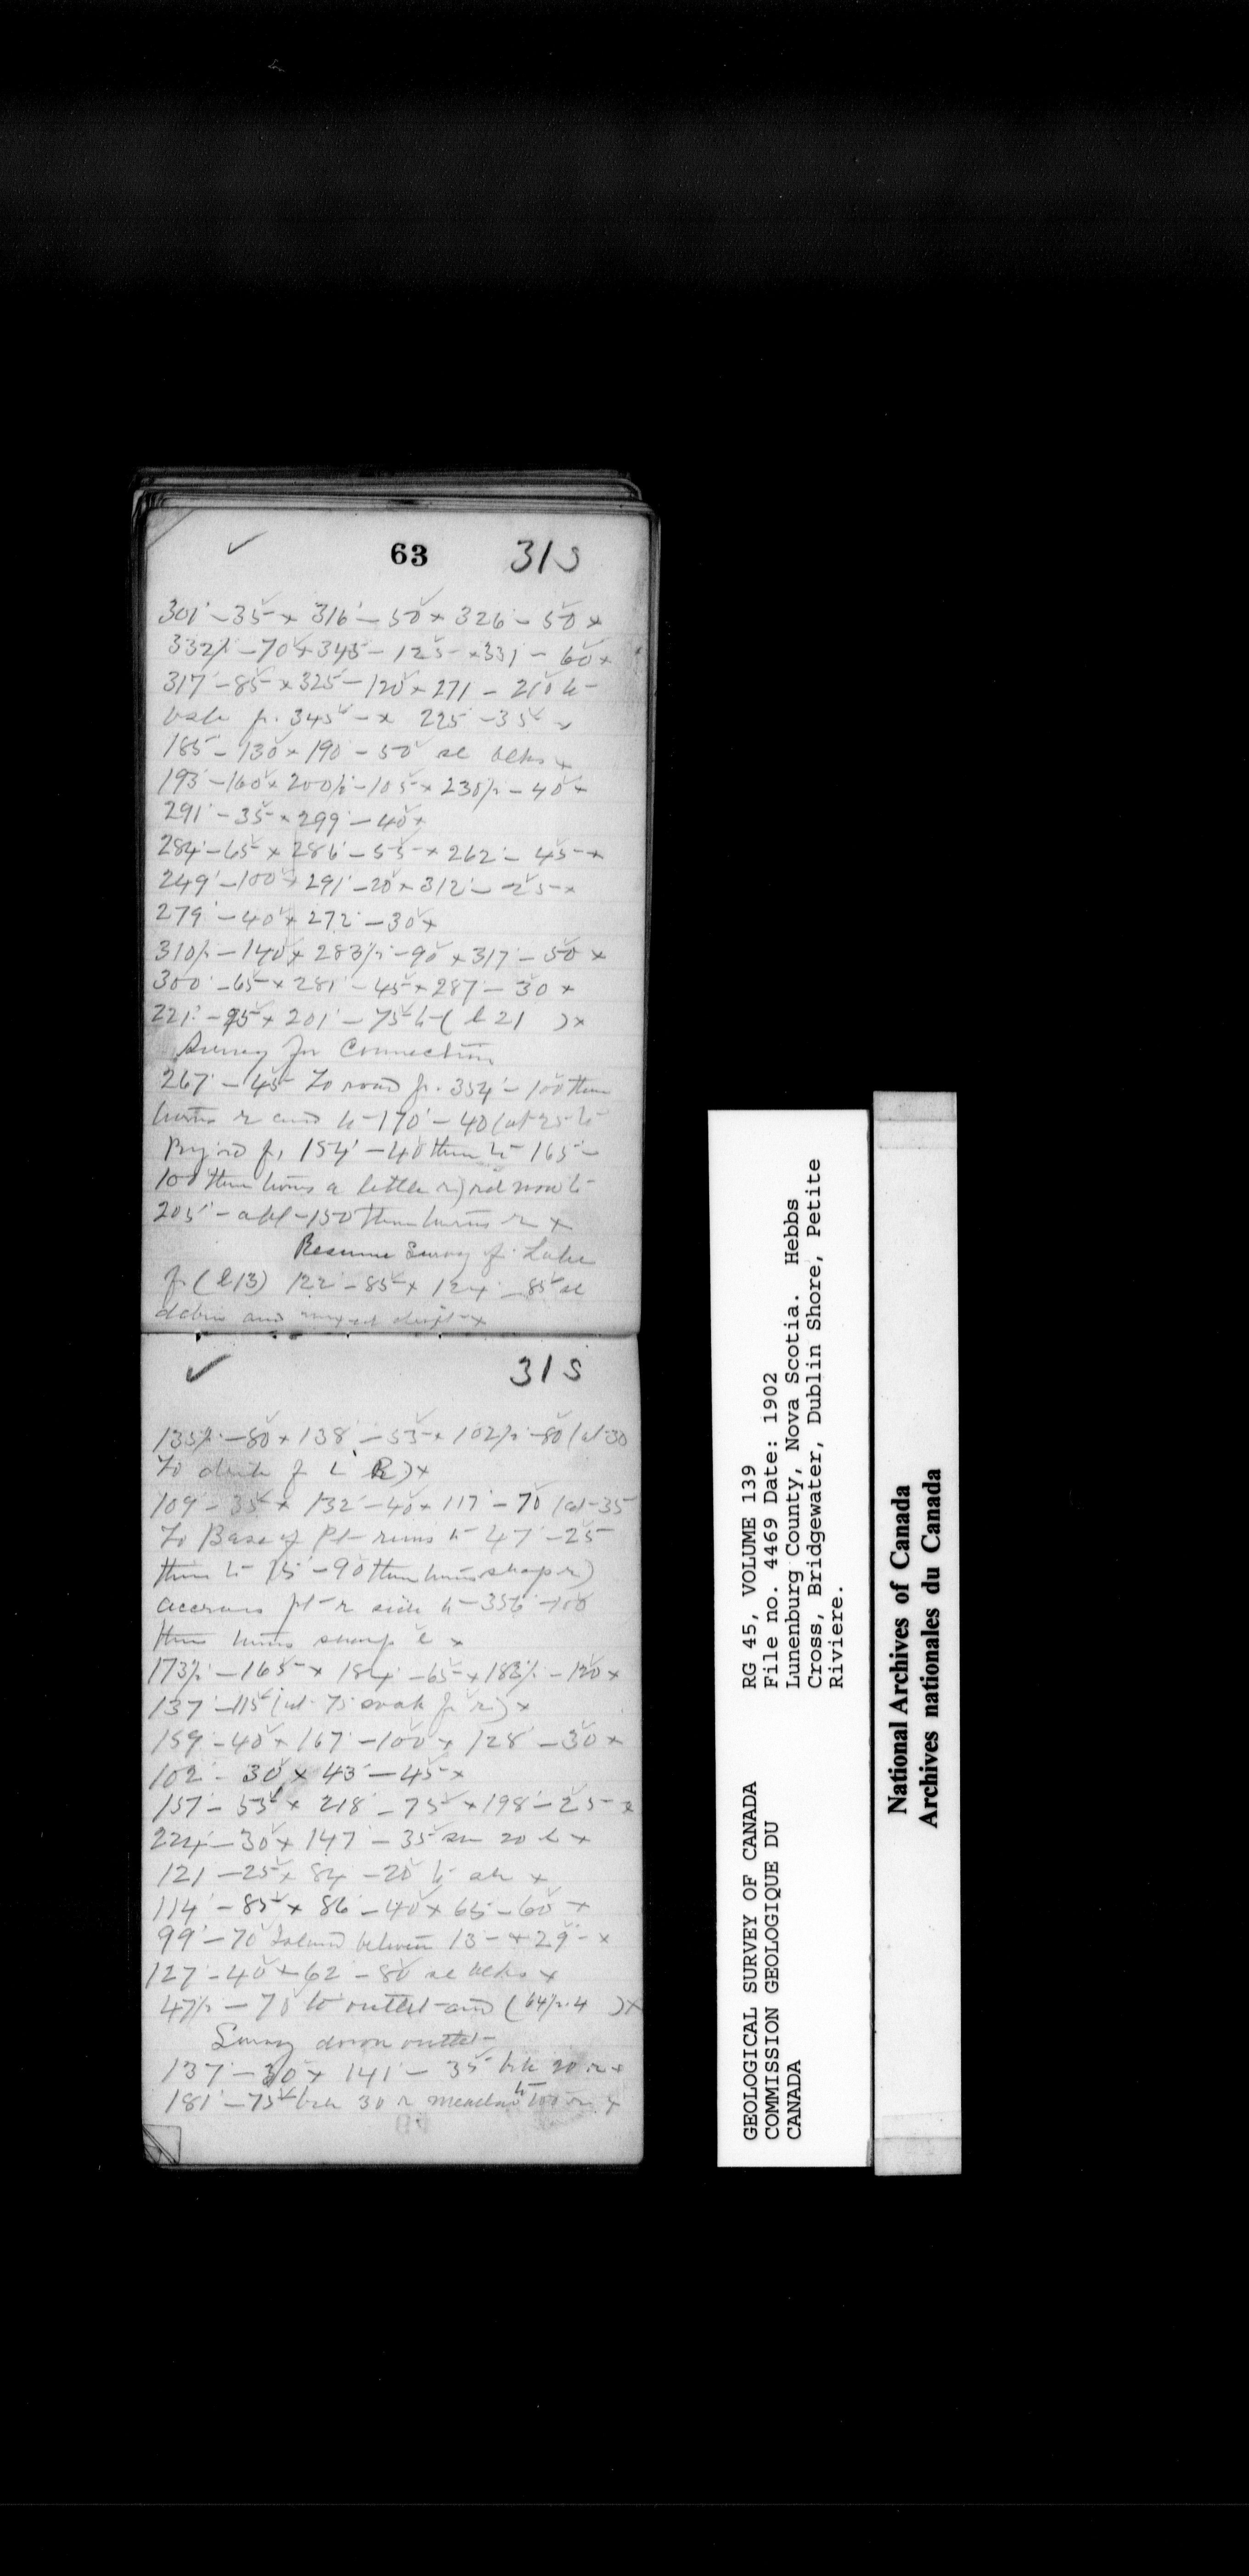 63 31S
301° - 35 x 316° - 50 x 326 - 50 x
332½ - 70 x 345 - 125 x 331 - 60 x
317° - 85 x 325 - 120 x 271 - 210 to
345 - x 225 - 35 x
185° - 130 x 190 - 50 se blks x
193° - 160 x 200½ - 105 x 230½ - 40 x
291° - 35 x 299° - 40 x
284° - 65 x 286° - 55 x 262° - 45 x
249° - 100 x 291° - 20 x 312° - 25 x
279° - 40 x 272° - 30 x
310½ - 140 x 283½ - 90 x 317 - 50 x
300° - 65 x 281° - 45 x 287 - 30 x
221° - 95 x 201° - 75 to ( l 21 ) x
Survey for Connection
267° - 45 To road fr. 354° - 100 then
turns r and to 170° - 40 (at 25 to
154° - 40 then to 165 -
100 then turns a little r) rd now to
205° - abt - 150 then turns r x
Resume Survey of Lake
fr (l 13) 122° - 85 x 124° - 85 se
debris and drift x
31S
135½ - 80 x 138° - 55 x 102½ - 80 (at 30
To x
109° - 35 x 132° - 40 x 117° - 70 (at 35
To Base of Pt runs to 47° - 25
then to 15° - 90 then turns sharp r)
across pt r side to 356° - 100
then turns sharp l x
173½ - 165 x 184 - 65 x 182½ - 120 x
137° - 115 (at 75 fr r) x
159° - 40 x 167° - 100 x 128° - 30 x
102° - 30 x 43° - 45 x
157° - 55 x 218° - 75 x 198° - 25 x
224° - 30 x 147° - 35 20 l x
121 - 25 x 84 - 20 to x
114° - 85 x 86° - 40 x 65° - 60 x
99° - 70 Island between 13 - + 29 - x
127 - 40 x 62° - 80 se blks x
47½ - 70 to outlet and (64½.4 ) x
Survey down outlet
137° - 30 x 141° - 35 brk 20 r x
181° - 75 brk 30 r meadow to 100 x
RG 45, VOLUME 139
File no. 4469 Date: 1902
Lunenburg County, Nova Scotia. Hebbs
Cross, Bridgewater, Dublin Shore, Petite
Riviere.
GEOLOGICAL SURVEY OF CANADA
COMMISSION GEOLOGIQUE DU
CANADA
National Archives of Canada
Archives nationales du Canada